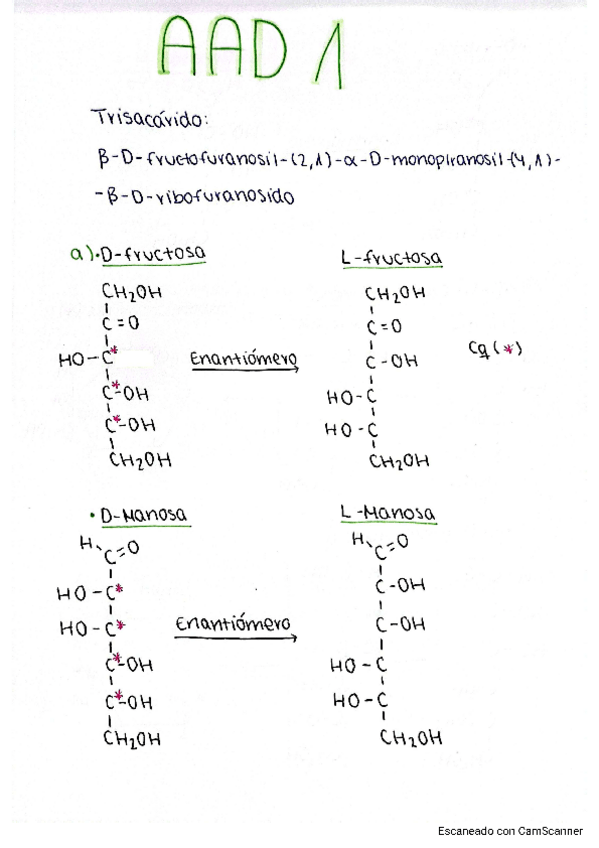 AAD 1
Trisacárido:
β-D-fructofuranosil-(2,1)-α-D-monopiranosil-(4,1)-
-β-D-ribofuranosido
a)·D-fructosa L-fructosa
CH₂OH CH₂OH
C=O C=O
HO-C* Enantiómero C-OH Cq (*)
C*-OH HO-C
C*-OH HO-C
CH₂OH CH₂OH
·D-Manosa L-Manosa
H C=O H C=O
HO-C* C-OH
HO-C* Enantiómero C-OH
C*-OH HO-C
C*-OH HO-C
CH₂OH CH₂OH
Escaneado con CamScanner